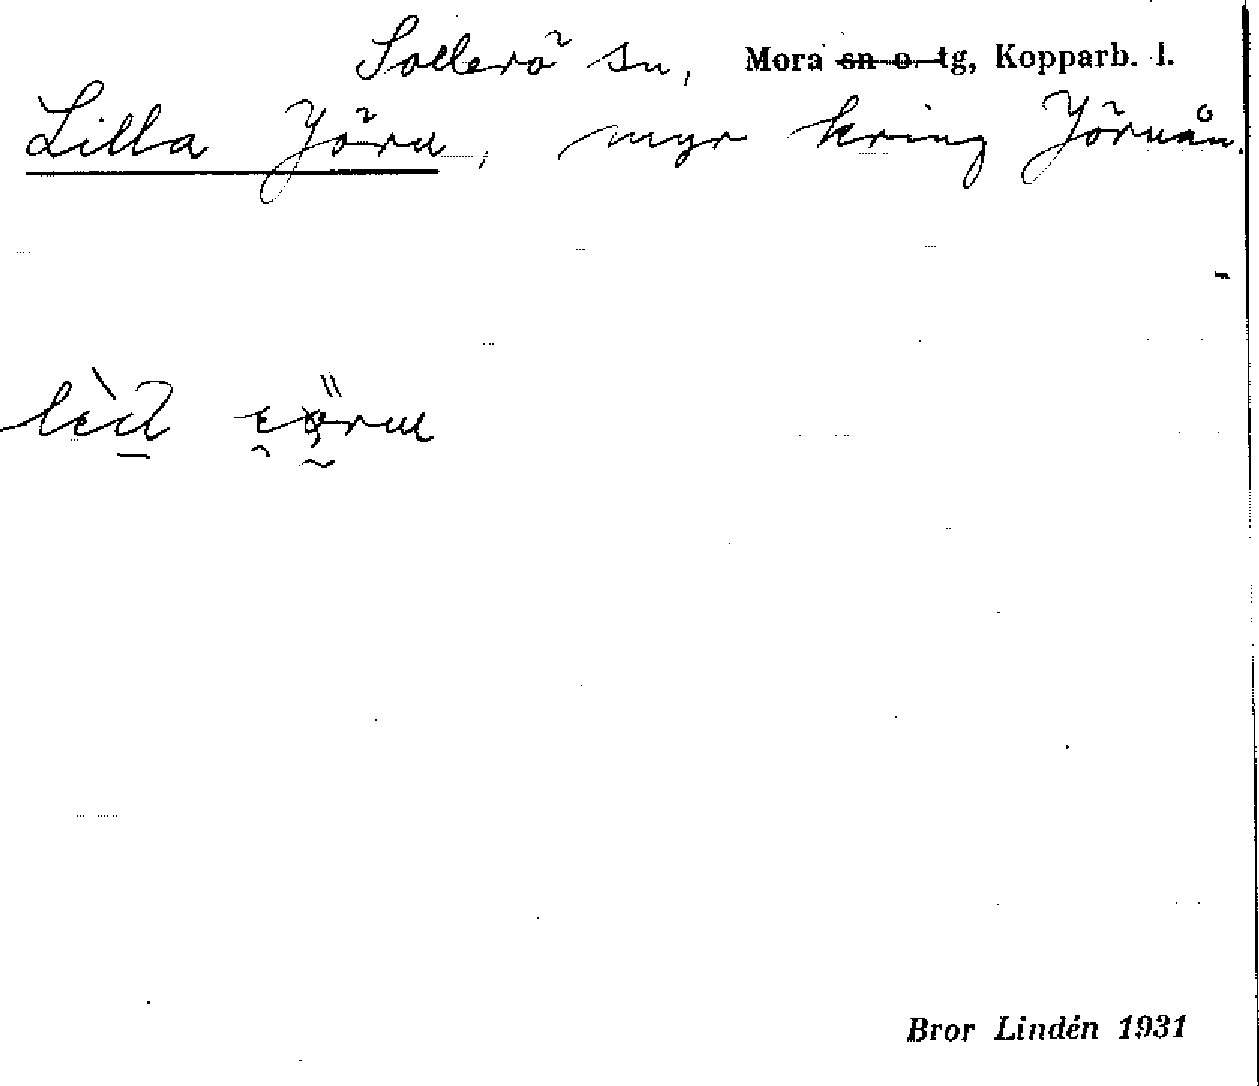 Sollerö sn, Mora sn o. tg, Kopparb. l.
Lilla Jöra, myr kring Jöruån.
Bror Lindén 1931